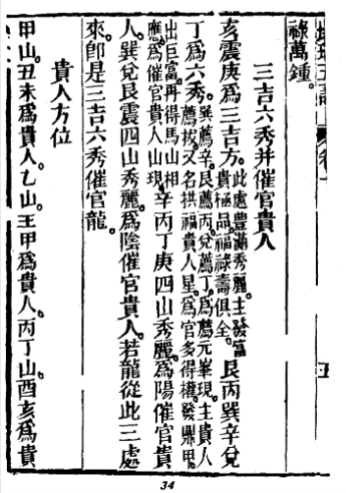 祿萬鍾。
三吉六秀并催官貴人
亥震庚為三吉方。此處豐滿秀麗。主發富貴極品。福祿壽俱全。艮丙巽辛兌
丁為六秀。巽薦辛。艮薦丙。兌薦丁。為薦元峯現。主貴人薦拔。又名拱福貴人星。為官多得權。發鼎甲。
出巨富。再得馬山相應。為催官貴人山現。辛丙丁庚四山秀麗。為陽催官貴
人。巽兌艮震四山秀麗。為陰催官貴人。若龍從此三處
來。卽是三吉六秀催官龍。
貴人方位
甲山。丑未為貴人。乙山。王甲為貴人。丙丁山酉亥為貴
34